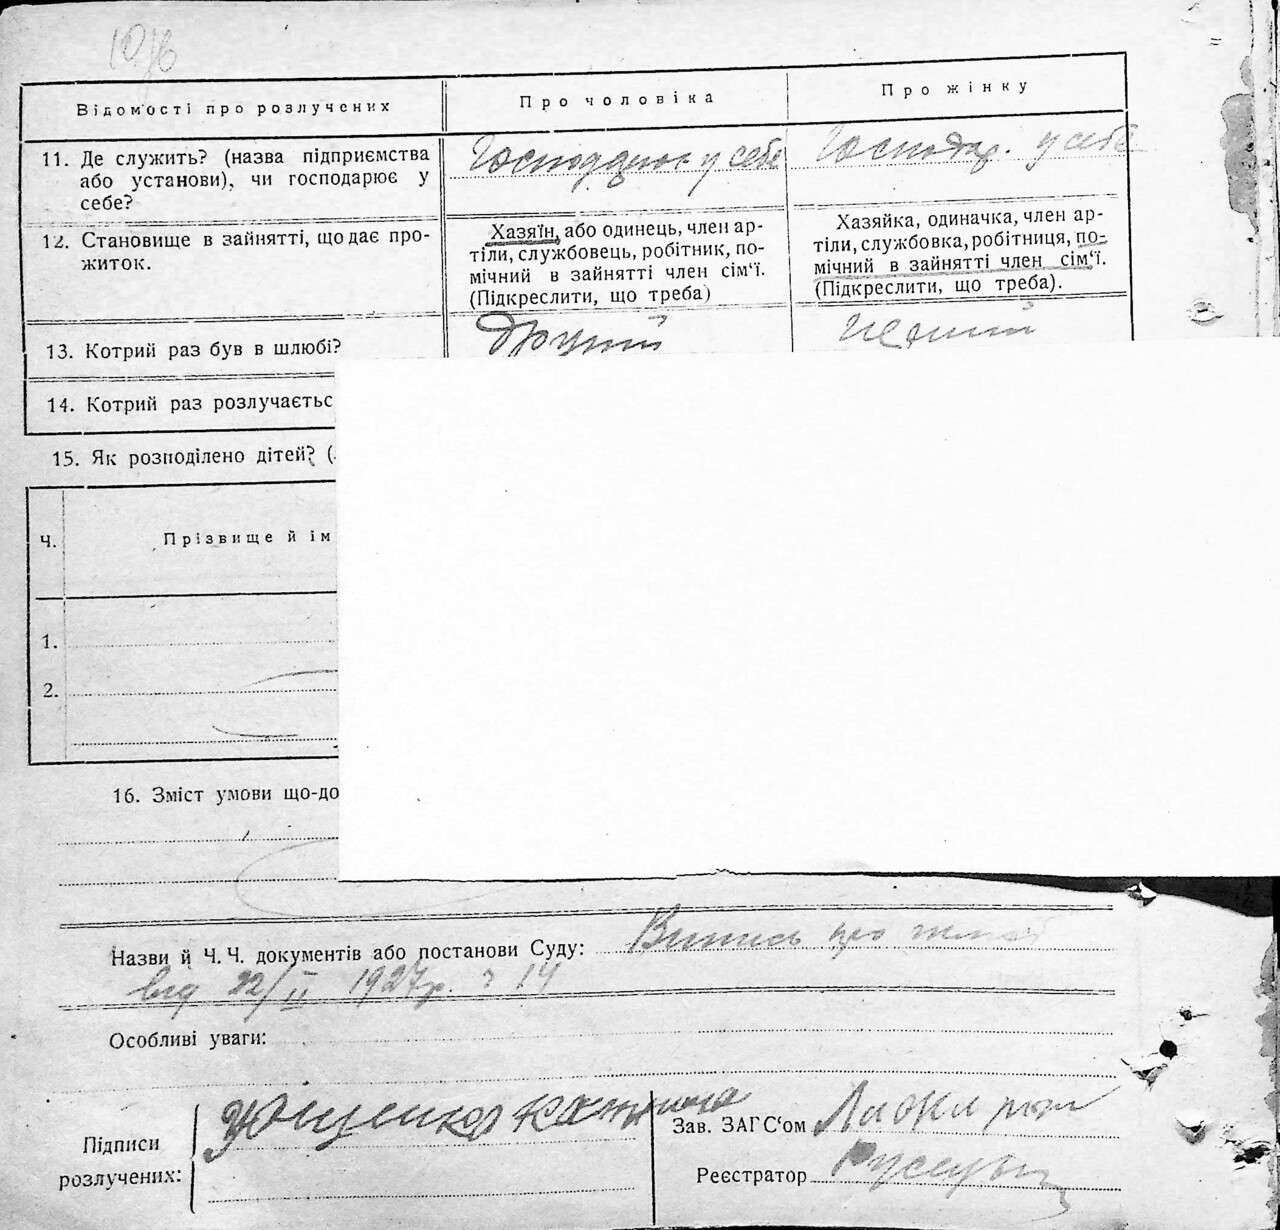 10/6
Відомості про розлучених
Про чоловіка
Про жінку
11. Де служить? (назва підприємства
або установи), чи господарює у
себе?
у себе
Господар. у себе
12. Становище в зайнятті, що дає про-
житок.
Хазяїн, або одинець, член ар-
тіли, службовець, робітник, по-
мічний в зайнятті член сім‘ї.
(Підкреслити, що треба)
Хазяйка, одиначка, член ар-
тіли, службовка, робітниця, по-
мічний в зайнятті член сім‘ї.
(Підкреслити, що треба).
13. Котрий раз був в шлюбі?
другий
перший
14. Котрий раз розлучаєтьс
15. Як розподілено дітей? (
Ч.
Прізвище й ім
1.
2.
16. Зміст умови що-до
Назви й Ч. Ч. документів або постанови Суду: Випись про
від 22/II 1927р. ч 14
Особливі уваги:
Підписи
розлучених:
Ющенко Катерина
Зав. ЗАГС‘ом
Реєстратор